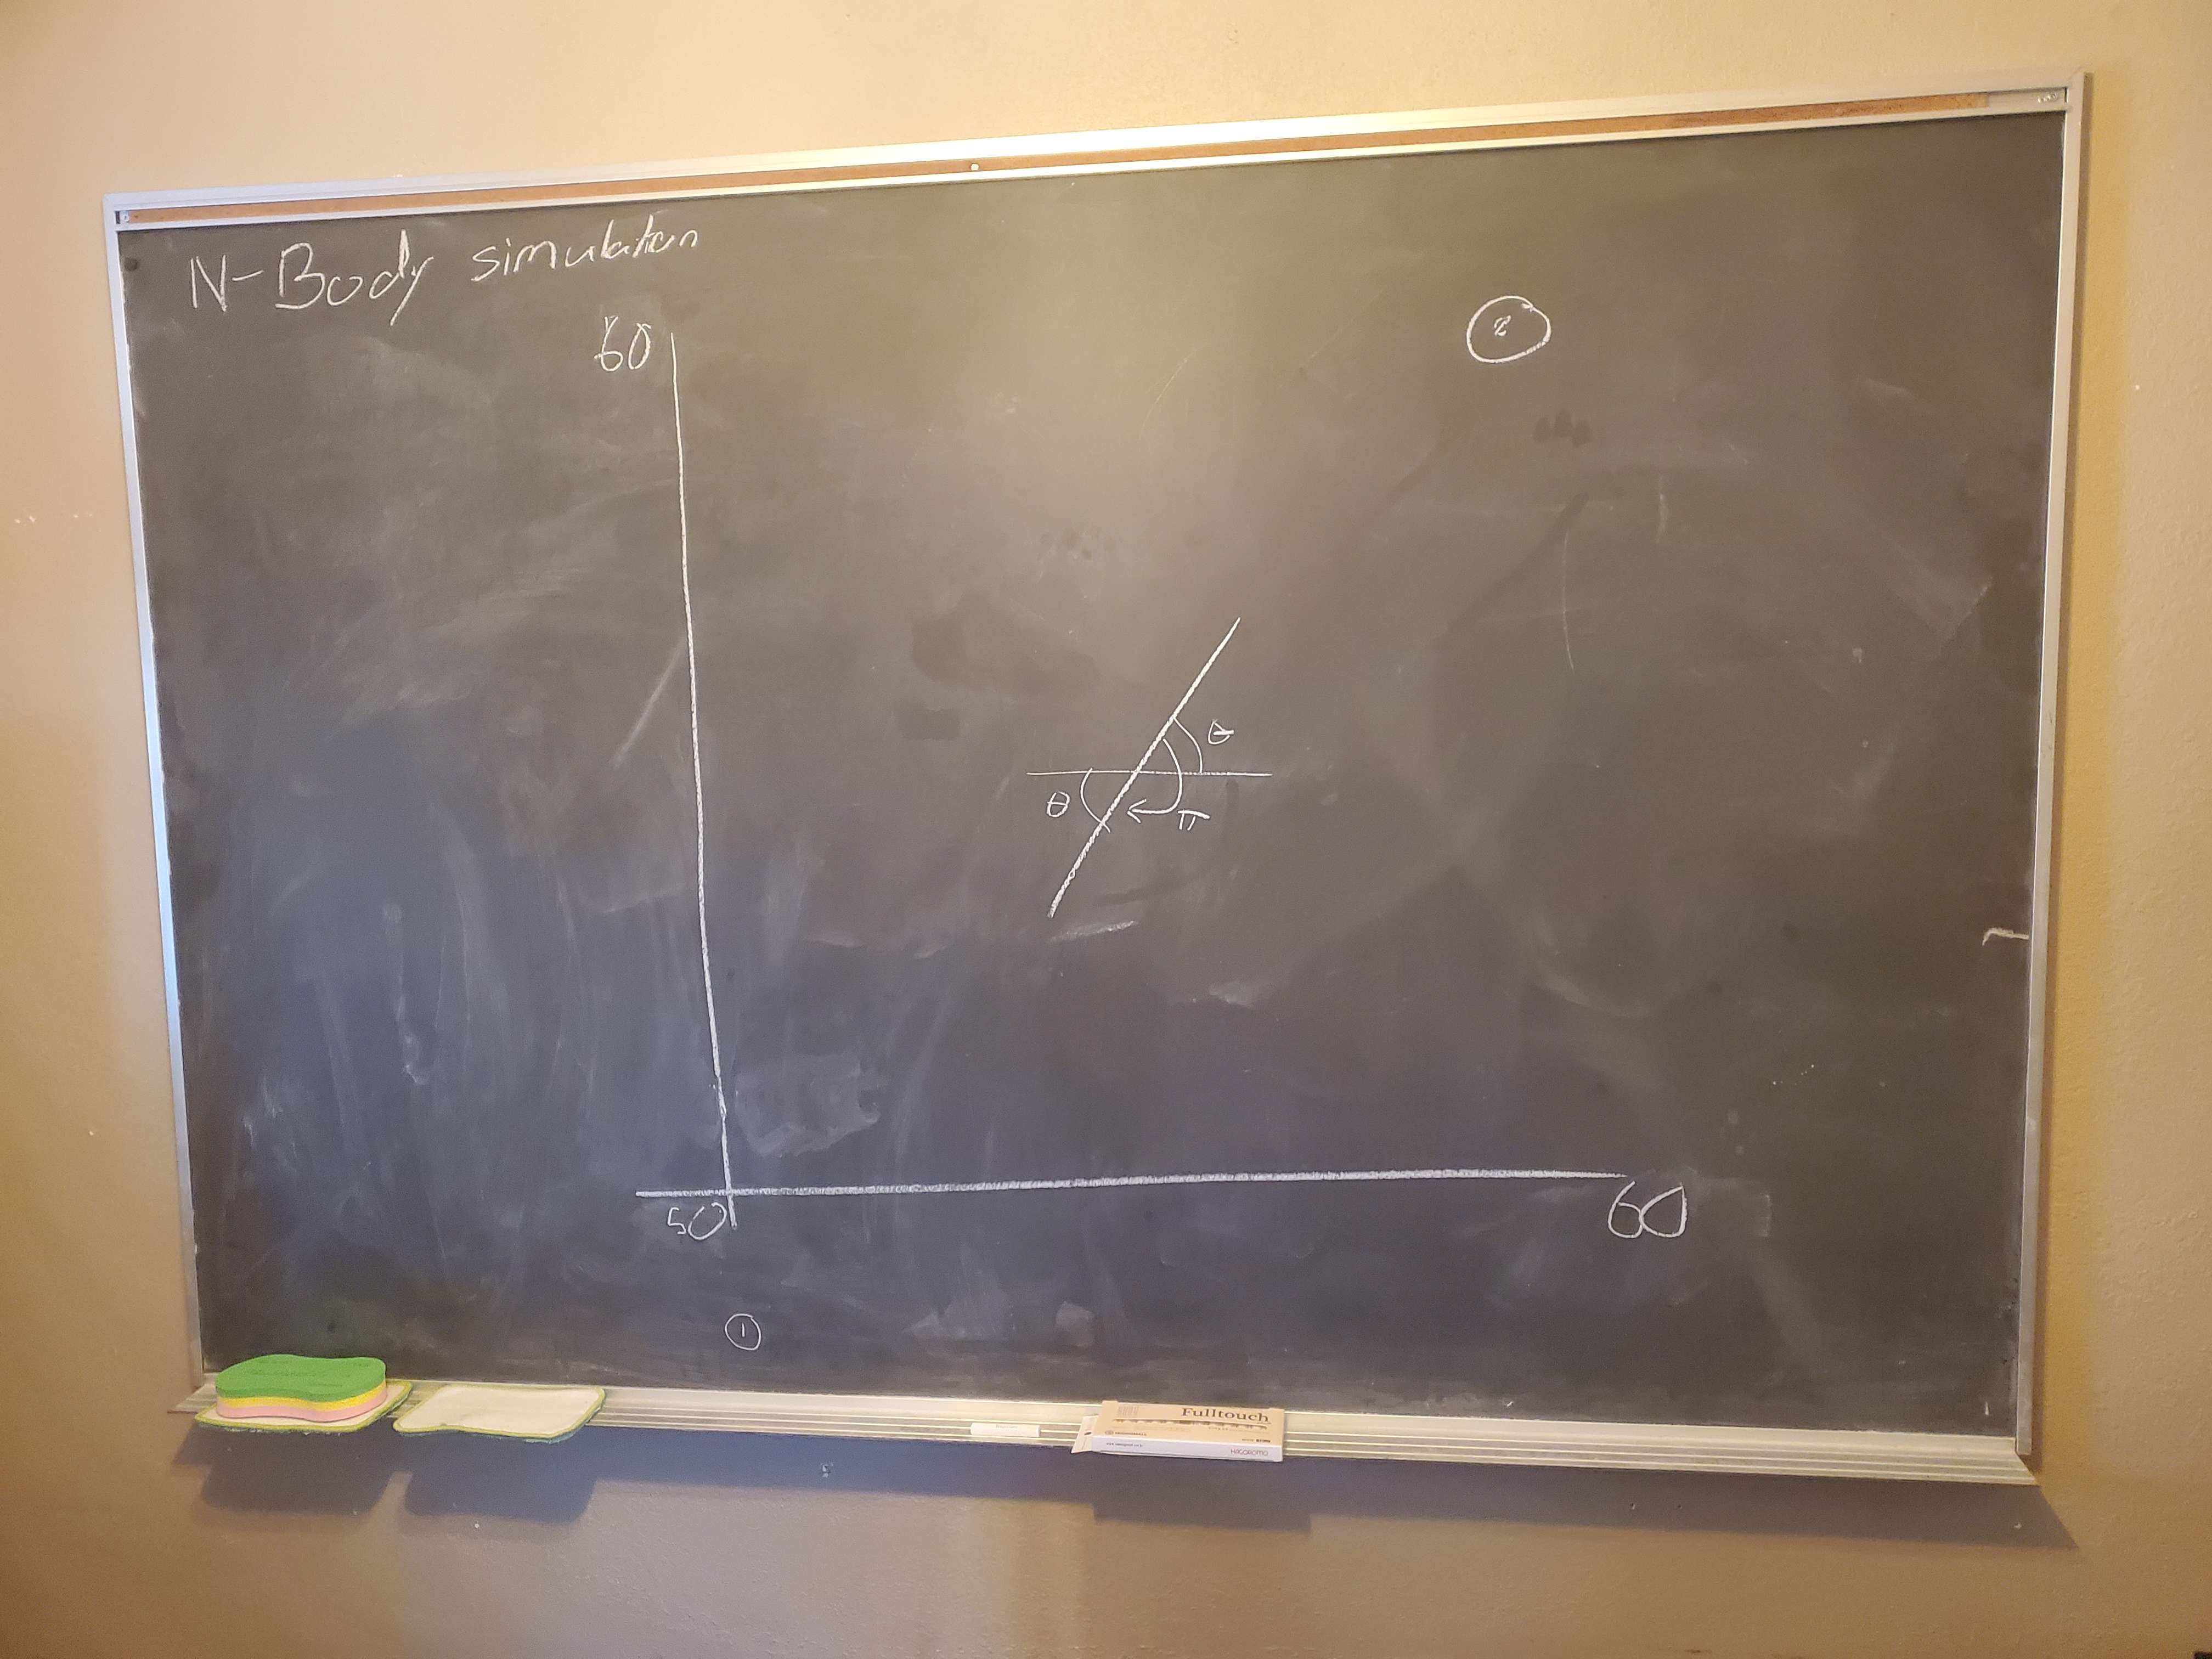 N-Body simulation
60
2
θ
θ
π
50
60
1
Fulltouch
HAGOROMO